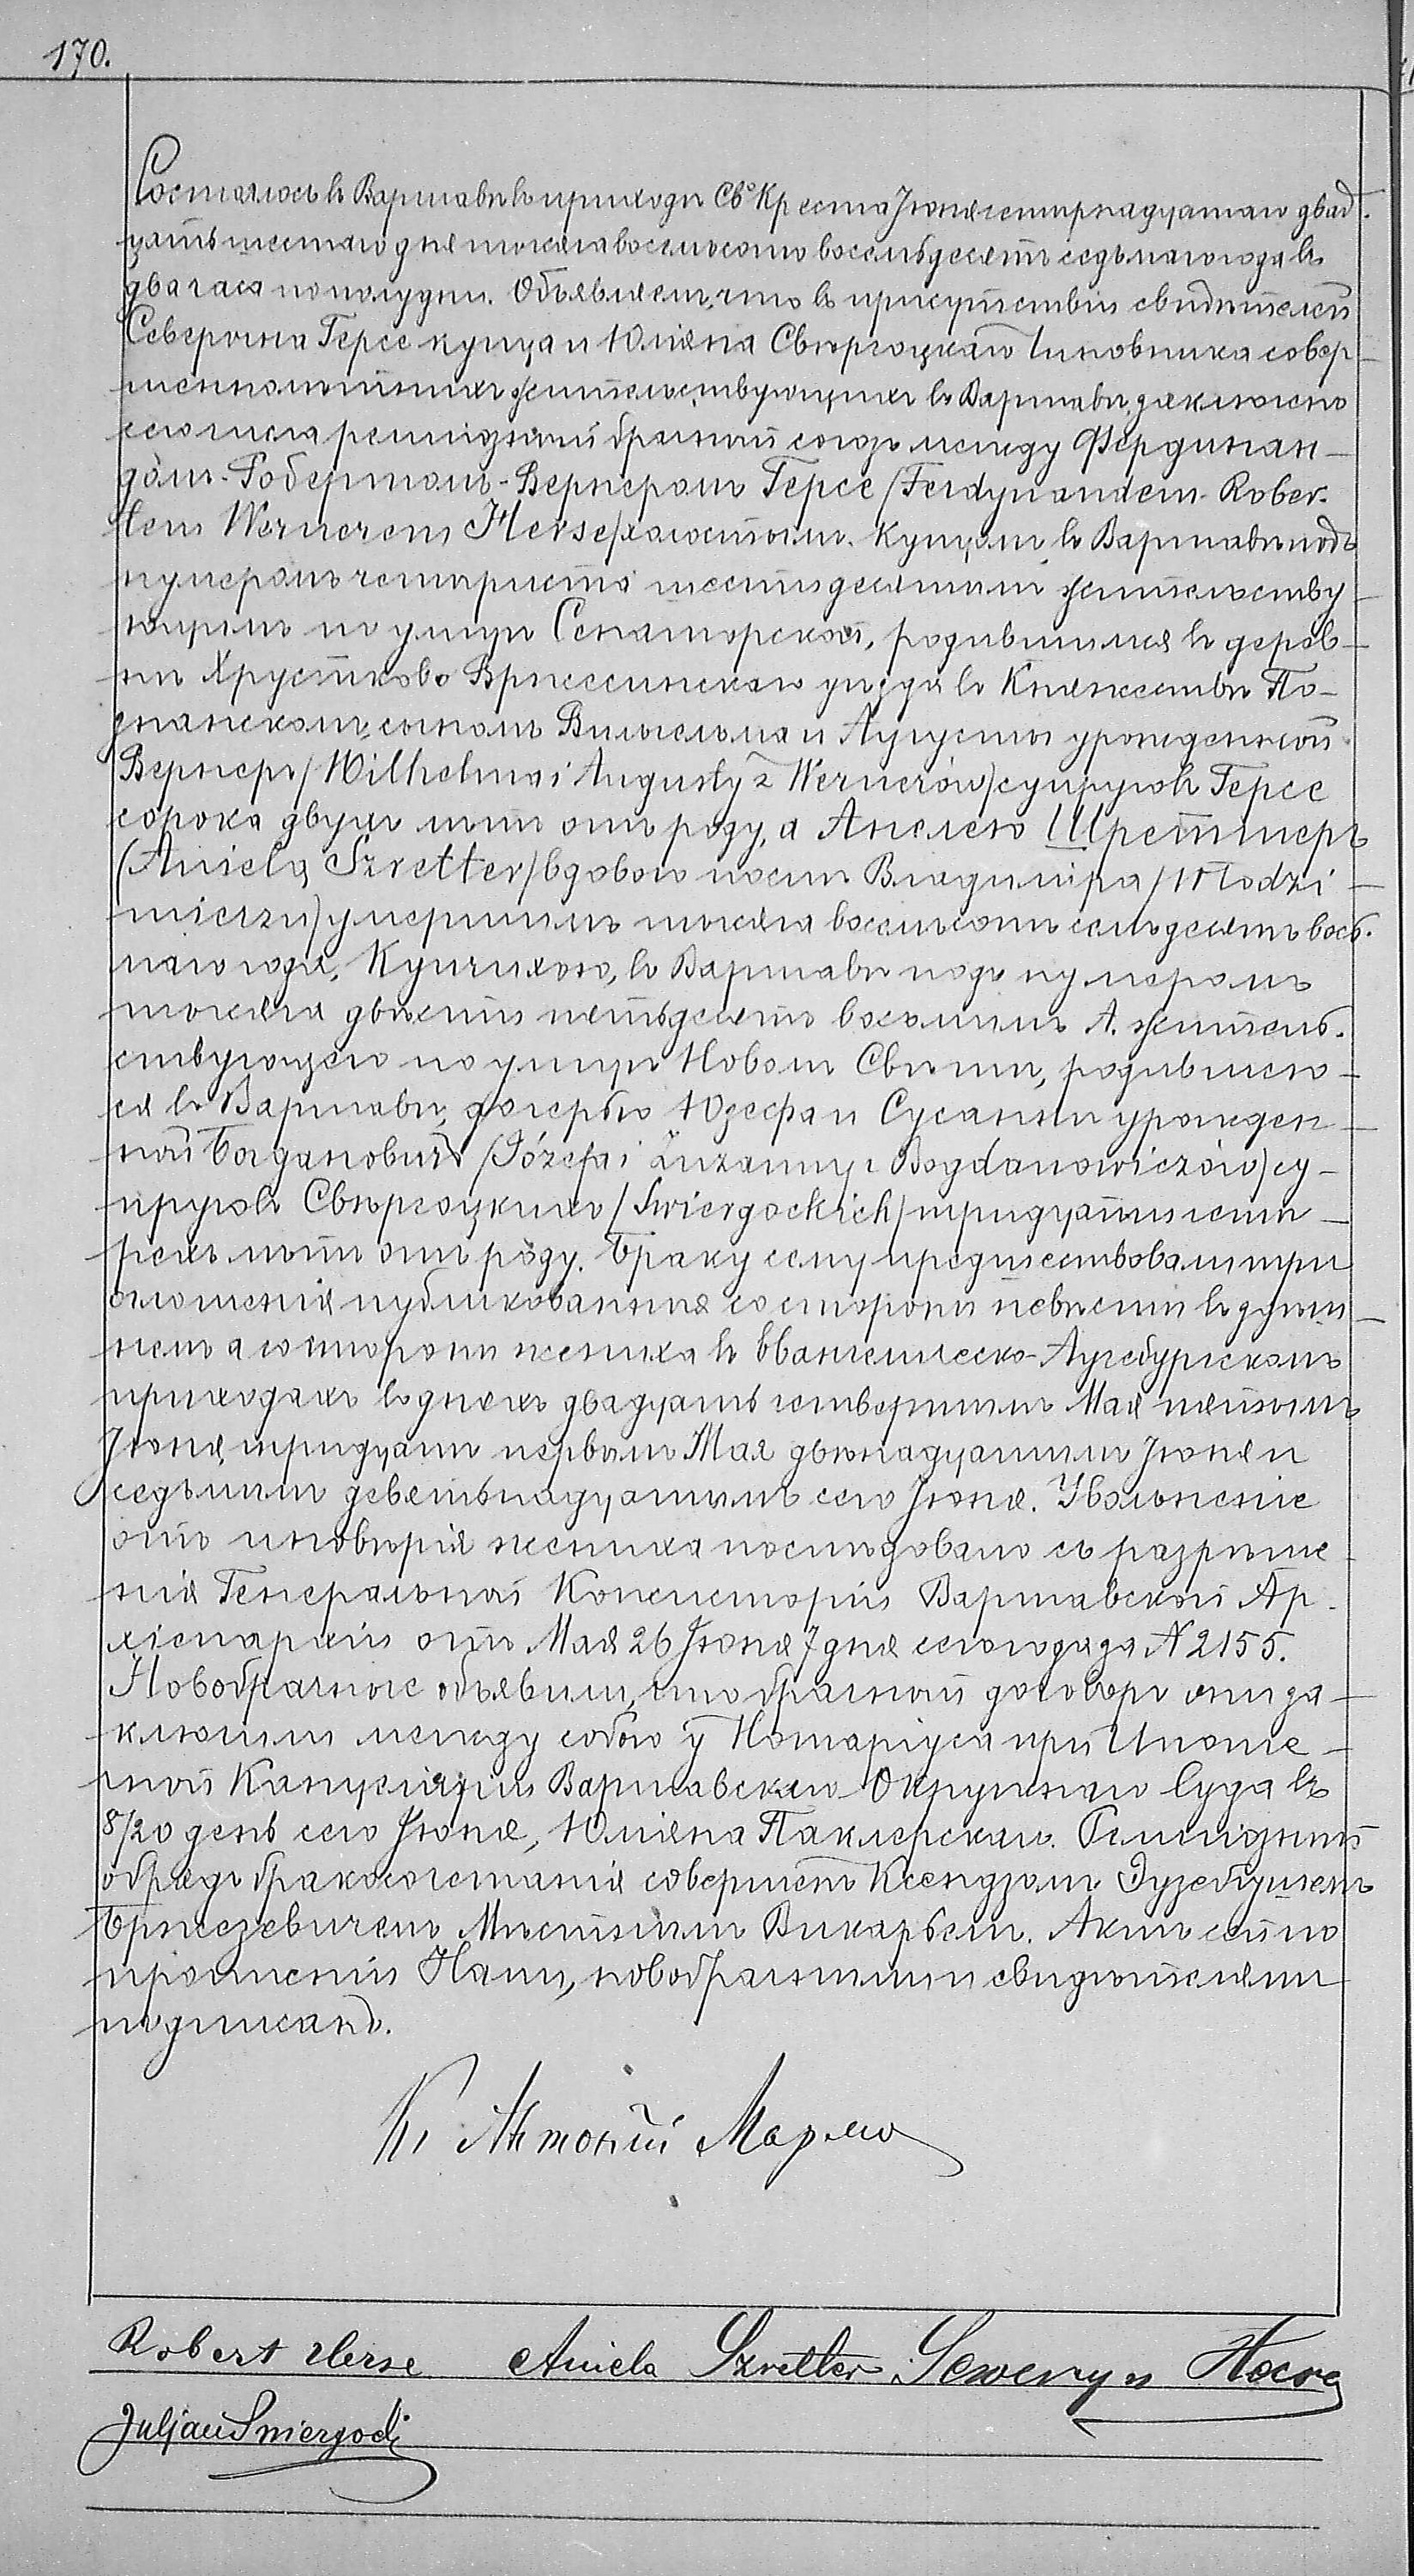 170.
Состоялось въ Варшавѣ въ приходѣ Св° Креста Іюня четырнадцатаго двад-
цать шестаго дня тысяча восемьсотъ восемьдесятъ седьмаго года въ
два часа пополудни. Объявляемъ, что въ присутствіи свидѣтелей
Северына Герсе купца и Юліяна Свѣргоцкаго Чиновника совер-
шеннолѣтнихъ жительствующихъ въ Варшавѣ, заключенъ
сего числа религіозный брачный союзъ между Фердинан-
домъ-Робертомъ-Вернеромъ Герсе /Ferdynandem-Rober-
tem Wernerem Herse/ холостымъ. Купцомъ въ Варшавѣ подъ
нумеромъ четыриста шестьдесятымъ жительству-
ющимъ по улицѣ Сенаторской, родившимся въ дерев-
нѣ Хрустково Врнесинскаго уѣзда въ Княжествѣ По-
знанскомъ, сыномъ Вильгельма и Августы урожденной
Вернеръ /Wilhelma i Augusty z Wernerów/ супруговъ Герсе
сорока двухъ лѣтъ отъ роду, а Анелею Шреттеръ
/Aniela Szretter/ вдовою послѣ Владиміра /Włodzi-
mierzu/ умершимъ тысяча восемьсотъ семьдесятъ вось-
маго года, Купчихою, въ Варшавѣ подъ нумеромъ
тысяча двѣсти пятьдесятъ восьмымъ А. житель-
ствующею по улицѣ Новомъ Свѣтѣ, родившею-
ся въ Варшавѣ, дочерью Юзефа и Сусанны урожден-
ной Богдановичъ /Józefa i Zuzanny z Bogdanowiczów/ су-
пруговъ Свѣргоцкихъ /Swiergockich/ тридцати четы-
рехъ лѣтъ отъ роду. Браку сему предшествовали три
оглошенія публикованныя со стороны невѣсты въ здѣш-
немъ а со стороны жениха въ Евангелическо-Аугсбургскомъ
приходахъ въ дняхъ двадцать четвертымъ Мая пятымъ
Іюня, тридцать первымъ Мая двѣнадцатымъ Іюня и
седьмымъ девятьнадцатымъ сего Іюня. Увольненіе
отъ иновѣрія жениха послѣдовало съ разрѣше-
нія Генеральной Консисторіи Варшавской Ар-
хіепархіи отъ Мая 26 Іюня 7 дня сего года за N 2155.
Новобрачные объявили, что брачный договоръ они за-
ключили между собою у Нотаріуса при Ипоте-
чной Канцеляріи Варшавскаго Окружнаго Суда въ
8/20 день сего Іюня, Юліяна Паклерскаго. Религіозный
обрядъ бракосочетанія совершенъ Ксендзомъ Эузебушемъ
Брнезевичемъ Мѣстнымъ Викарьемъ. Актъ сей по
прочтеніи Нами, новобрачными и свидѣтелями
подписанъ.
Robert Herse Aniela Szretter Seweryn Herse
Juljan Swiergocki